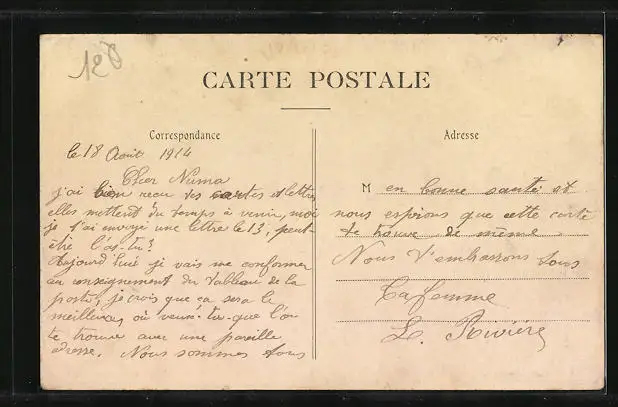 120
CARTE POSTALE
Correspondance
Adresse
le 18 Août 1914
Cher Numa
j'ai bien recu tes cartes et lettres
elles mettent du temps à venir, moi
je t'ai envoyé une lettre le 13, peut-
être l'as-tu?
Aujourd'hui je vais me conformer
au renseignement du Tableau de la
poste, je crois que ça sera le
meilleure, où veux-tu que l'on
te trouve avec une pareille
adresse. Nous sommes tous
M en bonne santé et
nous espérons que cette carte
te trouve de même
Nous t'embrassons tous
Ta femme
L. Rivière